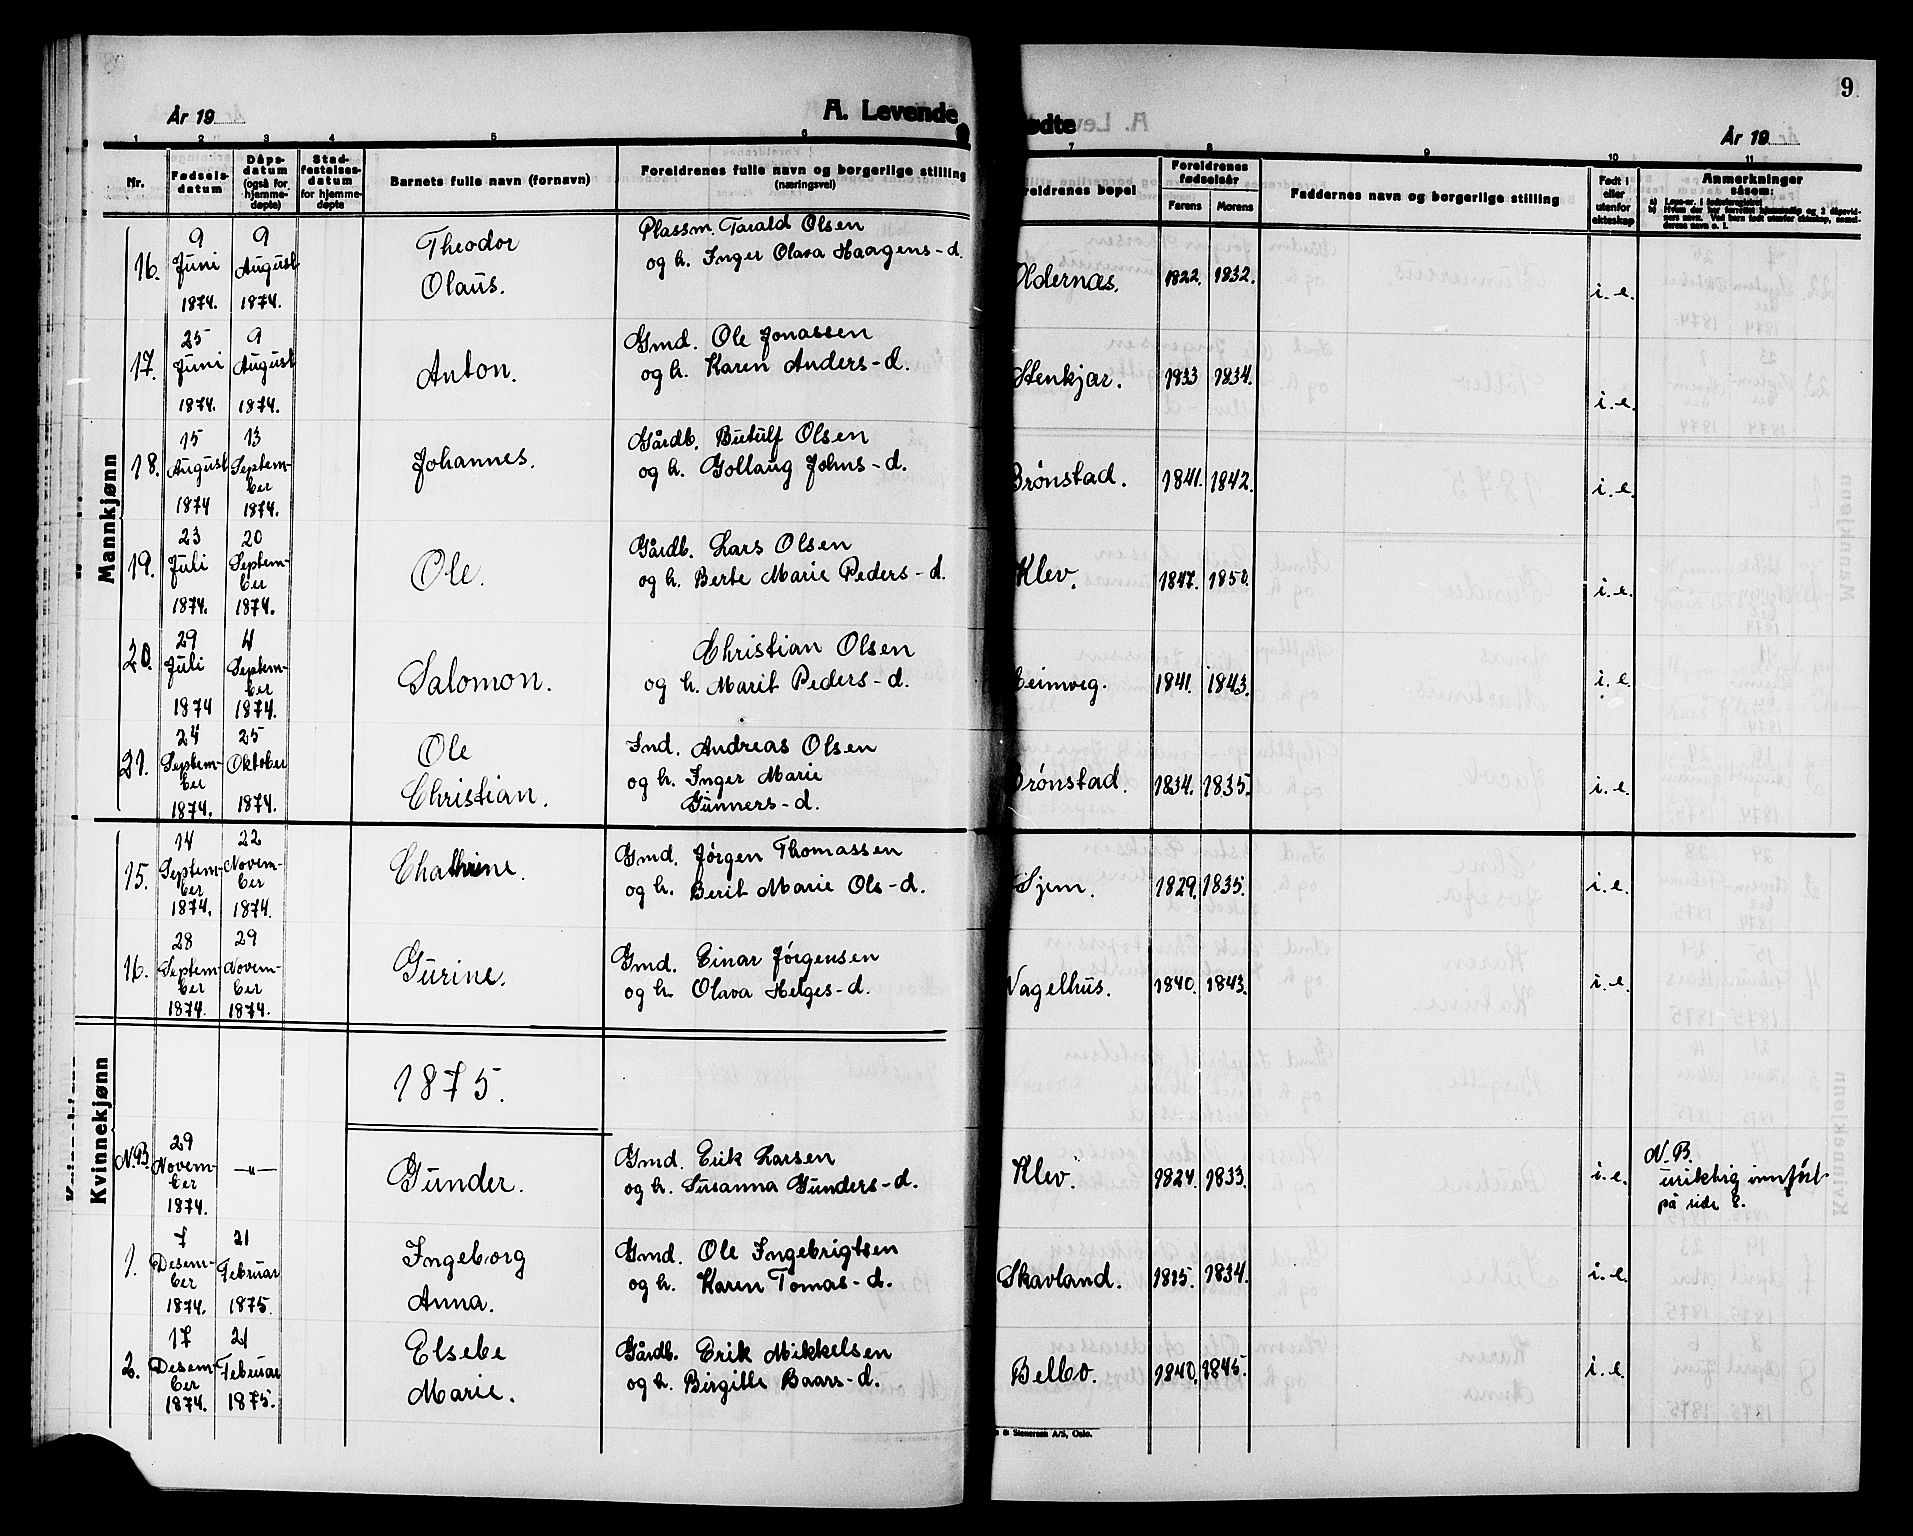 9
År 19 A. Levende fødte År 19
1 2 3 4 5 6 7 8 9 10 11
Nr. Fødselsdatum Dåpsdatum (også for hjemmedøpte) Stadfestelsesdatum for hjemmedøpte Barnets fulle navn (fornavn) Foreldrenes fulle navn og borgerlige stilling (næringsvei) Foreldrenes bopel Foreldrenes fødselsår Farens Morens Faddernes navn og borgerlige stilling Født i eller utenfor ekteskap Anmerkninger såsom:
Mannkjønn
16. 9 Juni 1874. 9 August 1874. Theodor Olaus. Plassm. Tarald Olsen og h. Inger Olava Haagens-d. Oldernæs. 1822. 1832. i.e.
17. 25 Juni 1874. 9 August 1874. Anton. Gmd. Ole Jonassen og h. Karen Anders-d. Stenkjar. 1833 1834. i.e.
18. 15 August 1874 13 September 1874. Johannes. Gårdb. Butulf Olsen og h. Gollaug Johns-d. Brønstad. 1841. 1842. i.e.
19. 23 Juli 1874. 20 September 1874. Ole. Gårdb. Lars Olsen og h. Berte Marie Peders-d. Klev. 1847. 1850. i.e.
20. 29 Juli 1874 4 September 1874. Salomon. Christian Olsen og h. Marit Peders-d. 1841. 1843. i.e.
21. 24 September 1874. 25 Oktober 1874. Ole Christian. Ind. Andreas Olsen og h. Inger Marie Gunners-d. Brønstad. 1834. 1835. i.e.
Kvinnekjønn
15. 14 September 1874. 22 November 1874. Chathrine. Gmd. Jørgen Thomassen og h. Berit Marie Ols-d. 1829. 1835. i.e.
16. 28 September 1874. 29 November 1874. Gurine. Gmd. Einar Jørgensen og h. Olava Helges-d. Vagelhus. 1840. 1843. i.e.
1875.
N.B. 29 November 1874. —"— Gunder. Gmd. Erik Larsen og h. Susanna Gunders-d. Klev. 1824. 1833. i.e. N.B. uriktig innført på side 8.
1. 7 Desember 1874. 21 Februar 1875. Ingeborg Anna. Gmd. Ole Ingebrigtsen og h. Karen Tomas-d. Skavland. 1815. 1834. i.e.
2. 17 Desember 1874. 21 Februar 1875. Elsebe Marie. Gårdb. Erik Mikkelsen og h. Birgitte Baars-d. Belbo. 1840. 1845. i.e.
& Stenersen A/S, Oslo.